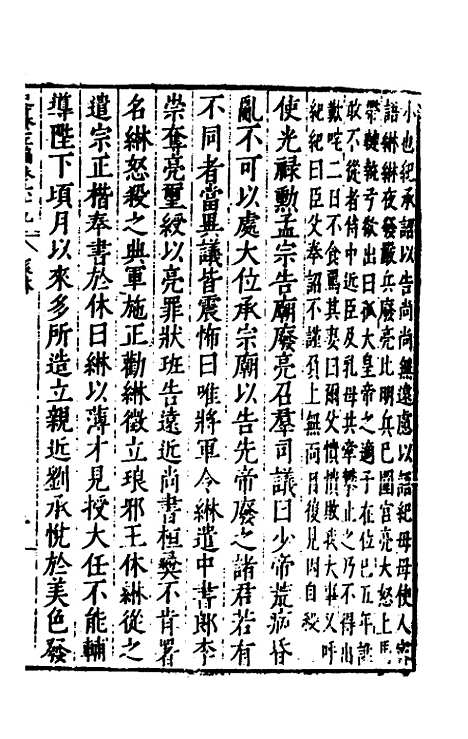 小也紀承詔以告尚尚無遠慮以語紀母母使人密
語綝綝夜發嚴兵廢亮比明兵已圍宮亮大怒上馬
帶鞬執弓欲出曰孤大皇帝之適子在位已五年誰
敢不從者侍中近臣及乳母共牽攀止之乃不得出
歎咤二日不食罵其妻曰爾父憒憒敗我大事又呼
紀紀曰臣父奉詔不謹負上無面目復見因自殺
使光祿勲孟宗告廟廢亮召羣司議曰少帝荒病昏
亂不可以處大位承宗廟以告先帝廢之諸君若有
不同者當異議皆震怖曰唯將軍令綝遣中書郎李
崇奪亮璽綬以亮罪狀班告遠近尚書桓彝不肯署
名綝怒殺之典軍施正勸綝徵立琅邪王休綝從之
遣宗正楷奉書於休曰綝以薄才見授大任不能輔
導陛下頃月以來多所造立親近劉承悅於美色發